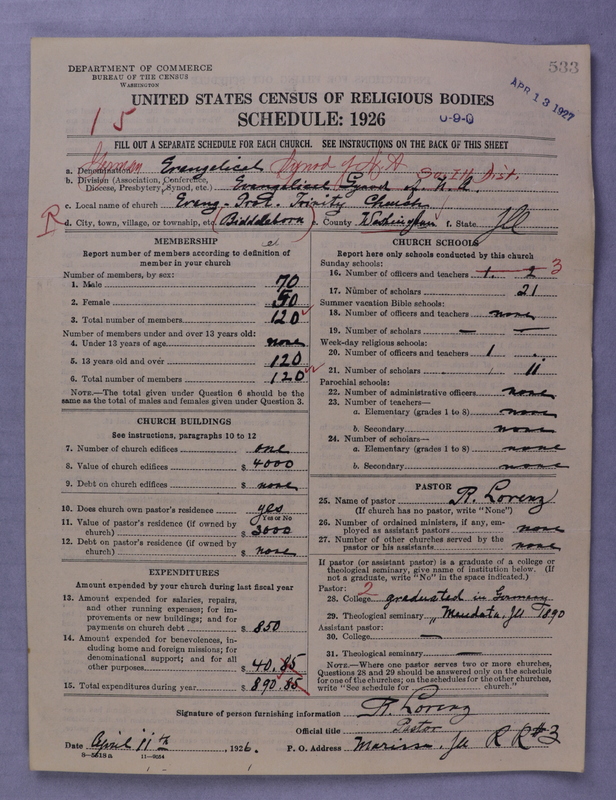 DEPARTMENT OF COMMERCE
BUREAU OF THE CENSUS
WASHINGTON
533
APR 13 1927
UNITED STATES CENSUS OF RELIGIOUS BODIES
SCHEDULE: 1926
15
0-9-0
FILL OUT A SEPARATE SCHEDULE FOR EACH CHURCH. SEE INSTRUCTIONS ON THE BACK OF THIS SHEET
a. Denomination German Evangelical Synod of N A
b. Division (Association, Conference, Diocese, Presbytery, Synod, etc.) Evangelical Synod of N. A. South Dist.
c. Local name of church Evang- Prot. Trinity Church
R
d. City, town, village, or township, etc. (Biddleborn) e. County Washington f. State Ill
MEMBERSHIP
Report number of members according to definition of
member in your church
Number of members, by sex:
1. Male 70
2. Female 50
3. Total number of members 120
Number of members under and over 13 years old:
4. Under 13 years of age none
5. 13 years old and over 120
6. Total number of members 120
NOTE.—The total given under Question 6 should be the
same as the total of males and females given under Question 3.
CHURCH BUILDINGS
See instructions, paragraphs 10 to 12
7. Number of church edifices one
8. Value of church edifices $ 4000
9. Debt on church edifices $ none
10. Does church own pastor's residence yes
Yes or No
11. Value of pastor's residence (if owned by
church) $ 3000
12. Debt on pastor's residence (if owned by
church) $ none
EXPENDITURES
Amount expended by your church during last fiscal year
13. Amount expended for salaries, repairs,
and other running expenses; for im-
provements or new buildings; and for
payments on church debt $ 850
14. Amount expended for benevolences, in-
cluding home and foreign missions; for
denominational support; and for all
other purposes $ 40.85
15. Total expenditures during year $ 890.85
CHURCH SCHOOLS
Report here only schools conducted by this church
Sunday schools:
16. Number of officers and teachers 1. 2 3
17. Number of scholars 21
Summer vacation Bible schools:
18. Number of officers and teachers none
19. Number of scholars — —
Week-day religious schools:
20. Number of officers and teachers 1
21. Number of scholars 11
Parochial schools:
22. Number of administrative officers none
23. Number of teachers—
a. Elementary (grades 1 to 8) none
b. Secondary none
24. Number of scholars—
a. Elementary (grades 1 to 8) none
b. Secondary none
PASTOR
25. Name of pastor R. Lorenz
(If church has no pastor, write "None")
26. Number of ordained ministers, if any, em-
ployed as assistant pastors none
27. Number of other churches served by the
pastor or his assistants none
If pastor (or assistant pastor) is a graduate of a college or
theological seminary, give name of institution below. (If
not a graduate, write "No" in the space indicated.)
Pastor: 2
28. College graduated in Germany
29. Theological seminary " Mendota, Ill 1890
Assistant pastor:
30. College —
31. Theological seminary —
NOTE.—Where one pastor serves two or more churches,
Questions 28 and 29 should be answered only on the schedule
for one of the churches; on the schedules for the other churches,
write "See schedule for church."
Signature of person furnishing information R. Lorenz
Official title Pastor
Date April 11th, 1926. P. O. Address Marissa, Ill R R#3
8—5518a 11—9054